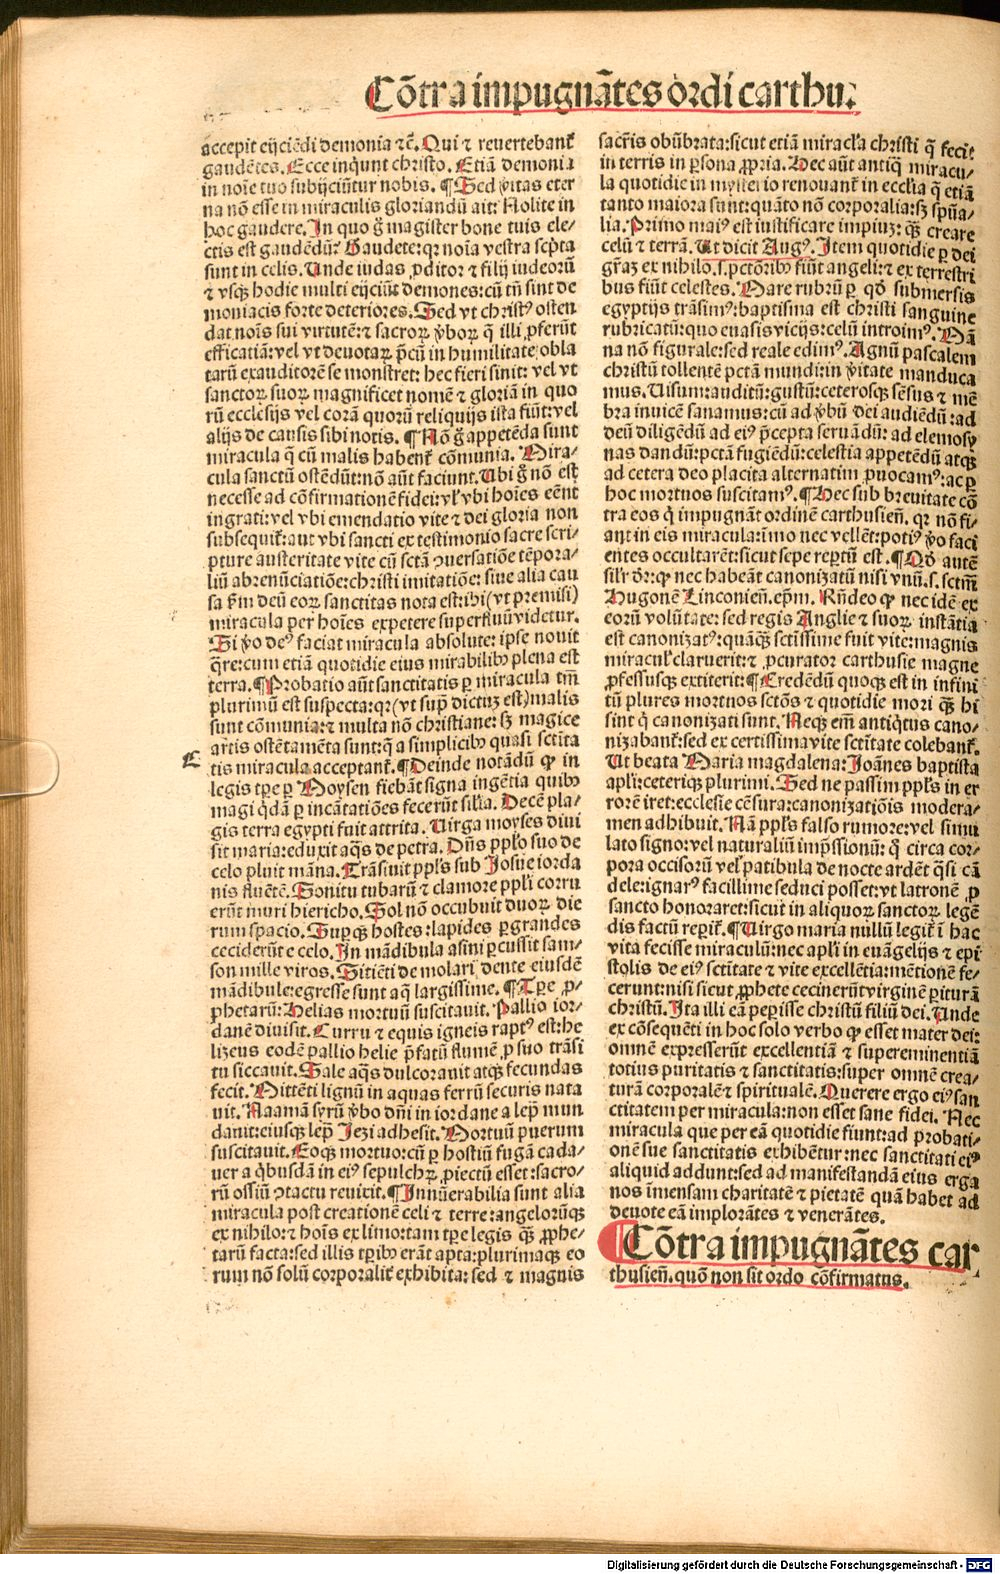 Cõtra impugnãtes ordi carthu.
accepit eijciẽdi demonia ⁊c̃. Qui ⁊ reuertebant᷑
gaudẽtes. Ecce inquint christo. Etiã demonia
in noĩe tuo subijciũtur nobis. ¶ Sed v̾itas eter
na nõ esse in miraculis gloriandũ ait: Nolite in
hoc gaudere. In quo g̊ magister bone tuis ele-
ctis est gaudẽdũ: Gaudete: q̃ noĩa vestra scp̃ta
sunt in celis. Unde iudas ꝓditor ⁊ filij iudeorũ
⁊ vsq̃ hodie multi eijciũt demones: cũ tñ sint de
moniacis forte deteriores. Sed vt christꝰ osten
dat noĩs sui virtutẽ: ⁊ sacroꝝ v̾boꝝ q̃ illi ꝓferũt
efficatiã: vel vt deuotaꝝ p̃cũ in humilitate obla
tarũ exauditorẽ se monstret: hec fieri sinit: vel vt
sanctoꝝ suoꝝ magnificet nomẽ ⁊ gloriã in quo
rũ ecclesijs vel corã quorũ reliquijs ista fiũt: vel
alijs de causis sibi notis. ¶ Nõ g̊ appetẽda sunt
miracula q̃ cũ malis habent᷑ cõmunia. Mira-
cula sanctũ ostẽdũt: nõ aũt faciunt. Ubi g̊ nõ est
necesse ad cõfirmationẽ fidei: vl̾ vbi hoĩes eẽnt
ingrati: vel vbi emendatio vite ⁊ dei gloria non
subsequit᷑: aut vbi sancti ex testimonio sacre scri-
pture austeritate vite cũ sctã ꝯuersatiõe tẽpora-
liũ abrenũciatiõe: christi imitatiõe: siue alia cau
sa p̃m deũ eoꝝ sanctitas nota est: ibi (vt premisi)
miracula per hoĩes expetere superfluũ videtur.
Si v̾o deꝰ faciat miracula absolute: ipse nouit
q̃re: cum etiã quotidie eius mirabilibꝰ plena est
terra. ¶ Probatio aũt sanctitatis ꝑ miracula tm̃
plurimũ est suspecta: qꝛ (vt sup̃ dictuꝫ est) malis
sunt cõmunia: ⁊ multa nõ christiane: sꝫ magice
artis ostẽtamẽta sunt: q̃ a simplicibꝰ quasi sctĩta
tis miracula acceptant᷑. ¶ Deinde notãdũ ꝙ in
legis tꝑe ꝑ Moysen fiebãt signa ingẽtia quibꝰ
magi q̾dã ꝑ incãtatiões fecerũt sil̾ia. Decẽ pla-
gis terra egypti fuit attrita. Uirga moyses diui
sit maria: eduxit aq̃s de petra. Dñs ppl̾o suo de
celo pluit mãna. Trãsiuit ppl̾s sub Josue iorda
nis fluẽtẽ. Sonitu tubarũ ⁊ clamore ppl̾i corru
erũt muri hiericho. Sol nõ occubuit duoꝝ die
rum spacio. Supq̃ hostes: lapides ꝑgrandes
ceciderũt e celo. In mãdibula asini ꝑcussit sam-
son mille viros. Sitiẽti de molari dente eiusdẽ
mãdibule: egresse sunt aq̃ largissime. ¶ Tꝑe ꝓ-
phetarũ: Helias mortuũ suscitauit. Pallio ior-
danẽ diuisit. Curru ⁊ equis igneis raptꝰ est: he
lizeus eodẽ pallio helie p̃fatũ flumẽ ꝓ suo trãsi
tu siccauit. Sale aq̃s dulcorauit atqꝫ fecundas
fecit. Mittẽti lignũ in aquas ferrũ securis nata
uit. Naamã syrũ v̾bo dñi in iordane a lep̃ mun
dauit: eiusqꝫ lep̃ Jezi adhesit. Mortuũ puerum
suscitauit. Eoqꝫ mortuo: cũ ꝑ hostiũ fugã cada-
uer a q̾busdã in eiꝰ sepulchꝝ ꝓiectũ esset: sacro-
rũ ossiũ ꝯtactu reuixit. ¶ Innũerabilia sunt alia
miracula post creationẽ celi ⁊ terre: angelorũqꝫ
ex nihilo: ⁊ hoĩs ex limo: tam tꝑe legis qꝫ̃ ꝓphe-
tarũ facta: sed illis tꝑibꝰ erãt apta: plurimaqꝫ eo
rum nõ solũ corporalit᷑ exhibita: sed ⁊ magnis
E
sacr̃is obũbrata: sicut etiã miracl̾a christi q̃ fecit
in terris in ꝑsona ꝓpria. Hec aũt antiq̃ miracu-
la quotidie in mysterio renouant᷑ in ecclĩa q̃ etiã
tanto maiora sunt: quãto nõ corporalia: sꝫ spũa-
lia. Primo maiꝰ est iustificare impiuꝫ: qꝫ̃ creare
celũ ⁊ terrã. Ut dicit Augꝰ. Item quotidie ꝑ dei
gr̃aꝫ ex nihilo .s. pctõribꝰ fiũt angeli: ⁊ ex terrestri
bus fiũt celestes. Mare rubrũ ꝑ qd̾ submersis
egyptijs trãsimꝰ: baptisma est christi sanguine
rubricatũ: quo euasis vicijs: celũ introimꝰ. Mã
na nõ figurale: sed reale edimꝰ. Agnũ pascalem
christũ tollentẽ pctã mundi: in v̾itate manduca
mus. Uisum: auditũ: gustũ: ceterosqꝫ sẽsus ⁊ mẽ
bra inuicẽ sanamus: cũ ad v̾bũ dei audiẽdũ: ad
deũ diligẽdũ ad eiꝰ p̃cepta seruãdũ: ad elemosy
nas dandũ: pctã fugiẽdũ: celestia appetẽdũ atqꝫ
ad cetera deo placita alternatim ꝓuocamꝰ: ac ꝑ
hoc mortuos suscitamꝰ. ¶ Hec sub breuitate cõ
tra eos q̾ impugnãt ordinẽ carthusieñ. qꝛ nõ fi-
ant in eis miracula: ĩmo nec vellẽt: potiꝰ v̾o faci
entes occultarẽt: sicut sepe reꝑtũ est. ¶ Qd̾ autẽ
sil̾r dr̃: ꝙ nec habeãt canonizatũ nisi vnũ .s. sctm̃
Hugonẽ Linconieñ. ep̃m. Rñdeo ꝙ nec idẽ ex
eorũ volũtate: sed regis Anglie ⁊ suoꝝ instãtia
est canonizatꝰ: quãqꝫ̃ sctissime fuit vite: magnis
miracul᷑ claruerit: ⁊ ꝓcurator carthusie magne
ꝓfessusqꝫ extiterit: ¶ Credẽdũ quoqꝫ est in infini
tũ plures mortuos sctõs ⁊ quotidie mori qꝫ̃ hi
sint q̾ canonizati sunt. Neqꝫ em̃ antiq̾tus cano-
nizabant᷑: sed ex certissima vite sctĩtate colebant᷑.
Ut beata Maria magdalena: Joãnes baptista
apl̾i: ceteriqꝫ plurimi. Sed ne passim ppl̾s in er
rorẽ iret: ecclesie cẽsura: canonizatiõis modera-
men adhibuit. Nã ppl̾s falso rumore: vel simu
lato signo: vel naturaliũ imp̃ssionũ: q̃ circa cor-
pora occisorũ vel patibula de nocte ardẽt q̃si cã
dele: ignarꝰ facillime seduci posset: vt latronẽ ꝓ
sancto honoraret: sicut in aliquoꝝ sanctoꝝ legẽ
dis factũ reꝑit᷑. ¶ Uirgo maria nullũ legit᷑ ĩ hac
vita fecisse miraculũ: nec apl̾i in euãgelijs ⁊ epi
stolis de eiꝰ sctĩtate ⁊ vite excellẽtia: mẽtionẽ fe-
cerunt: nisi sicut ꝓphete cecinerũt virginẽ ꝑiturã
christũ. Ita illi eã peꝑisse christũ filiũ dei. Unde
ex cõsequẽti in hoc solo verbo ꝙ esset mater dei:
omnẽ expresserũt excellentiã ⁊ supereminentiã
totius puritatis ⁊ sanctitatis: super omnẽ crea-
turã corporalẽ ⁊ spiritualẽ. Querere ergo eiꝰ san
ctitatem per miracula: non esset sane fidei. Nec
miracula que per eã quotidie fiunt: ad probati-
onẽ sue sanctitatis exhibẽtur: nec sanctitati eiꝰ
aliquid addunt: sed ad manifestandã eius erga
nos ĩmensam charitatẽ ⁊ pietatẽ quã habet ad
deuote eã implorãtes ⁊ venerãtes.
¶ Cõtra impugnãtes car
thusieñ. quõ non sit ordo cõfirmatus.
Digitalisierung gefördert durch die Deutsche Forschungsgemeinschaft - DFG